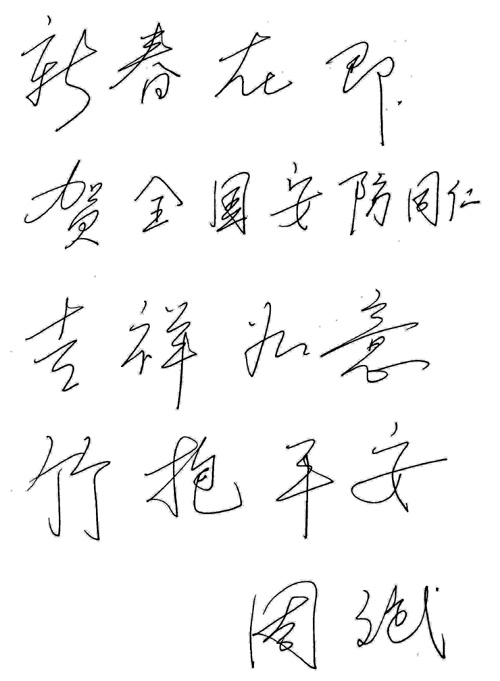 新春在即
贺全国安防同仁
吉祥如意
竹抱平安
周